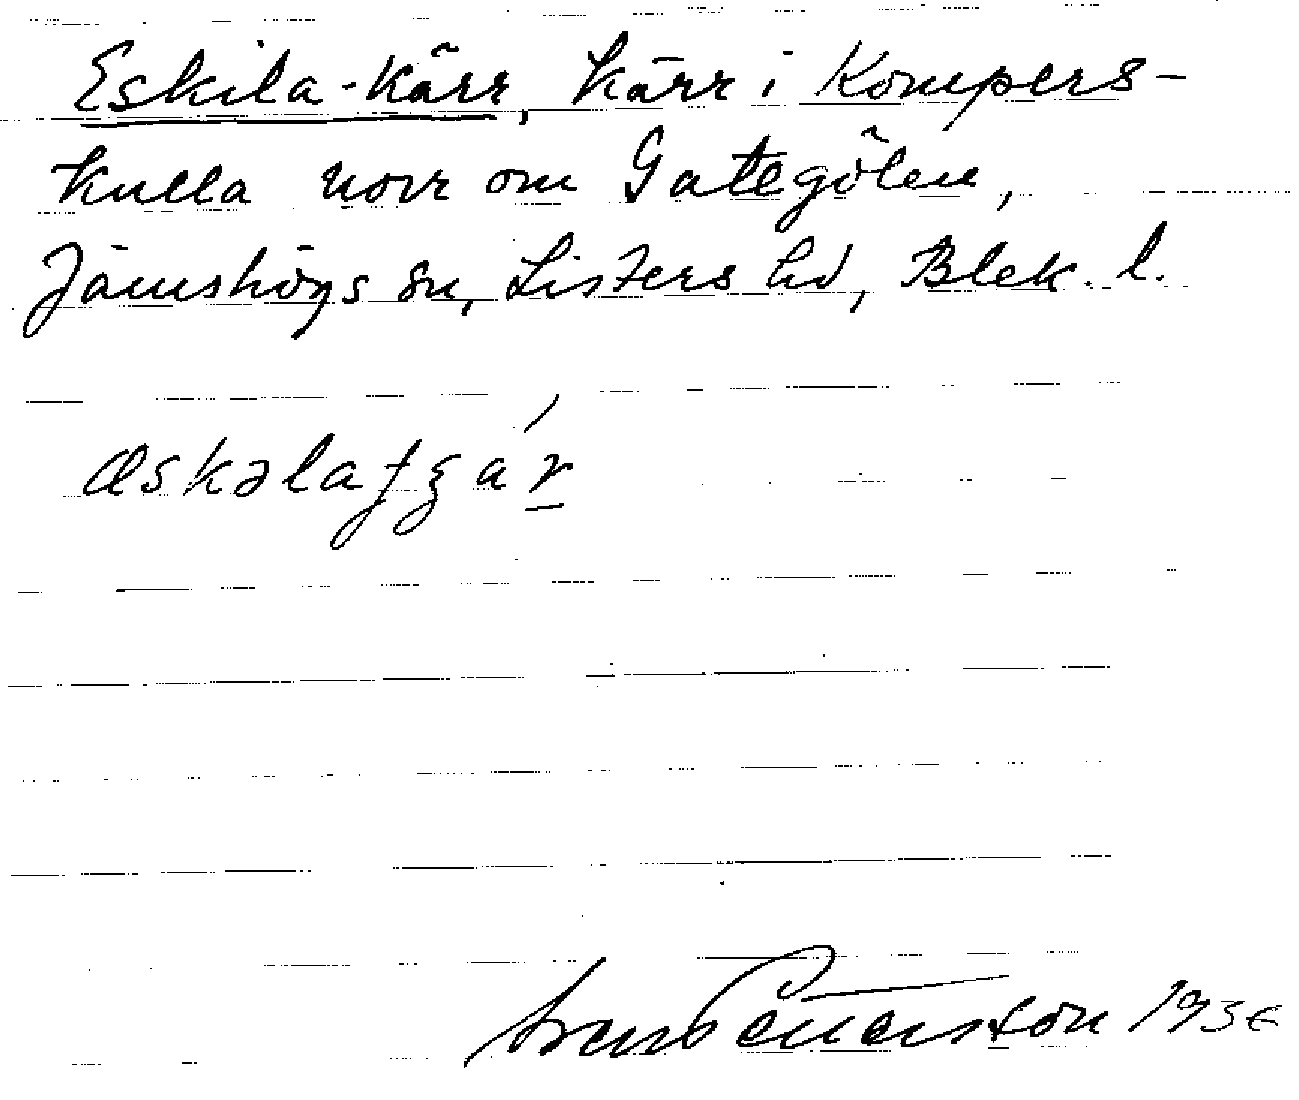 Eskila-kärr, kärr i Kompers-
kulla norr om Gategölen,
Jämshögs sn, Listers hd, Blek. l.
Pettersson 193